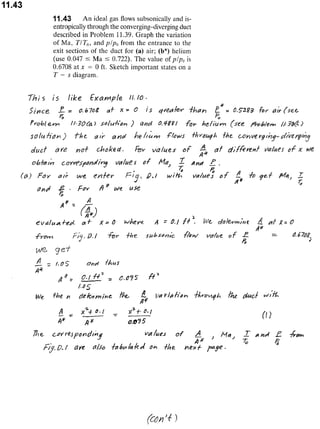 11.43
11.43 An ideal gas flows subsonically and is-
entropically through the converging-diverging duct
described in Problem 11.39. Graph the variation
of Ma, T/T₀, and p/p₀ from the entrance to the
exit sections of the duct for (a) air; (b*) helium
(use 0.047 ≤ Ma ≤ 0.722). The value of p/p₀ is
0.6708 at x = 0 ft. Sketch important states on a
T − s diagram.
This is like Example 11.10.
Since p/p₀ = 0.6708 at x = 0 is greater than p*/p₀ = 0.5283 for air (see
Problem 11.30(a) solution) and 0.4881 for helium (see Problem 11.30(b)
solution) the air and helium flows through the converging-diverging
duct are not choked. For values of A/A* at different values of x we
obtain corresponding values of Ma, T/T₀ and p/p₀.
(a) For air we enter Fig. D.1 with values of A/A* to get Ma, T/T₀
and p/p₀. For A* we use
A* = A/(A/A*)
evaluated at x = 0 where A = 0.1 ft². We determine A/A* at x = 0
from Fig. D.1 for the subsonic flow value of p/p₀ = 0.6708,
we get
A/A* = 1.05 and thus
A* = 0.1 ft²/1.05 = 0.095 ft²
We then determine the A/A* variation through the duct with
A/A* = x²+0.1/A* = x²+0.1/0.095 (1)
The corresponding values of A/A*, Ma, T/T₀ and p/p₀ from
Fig. D.1 are also tabulated on the next page.
(con't)